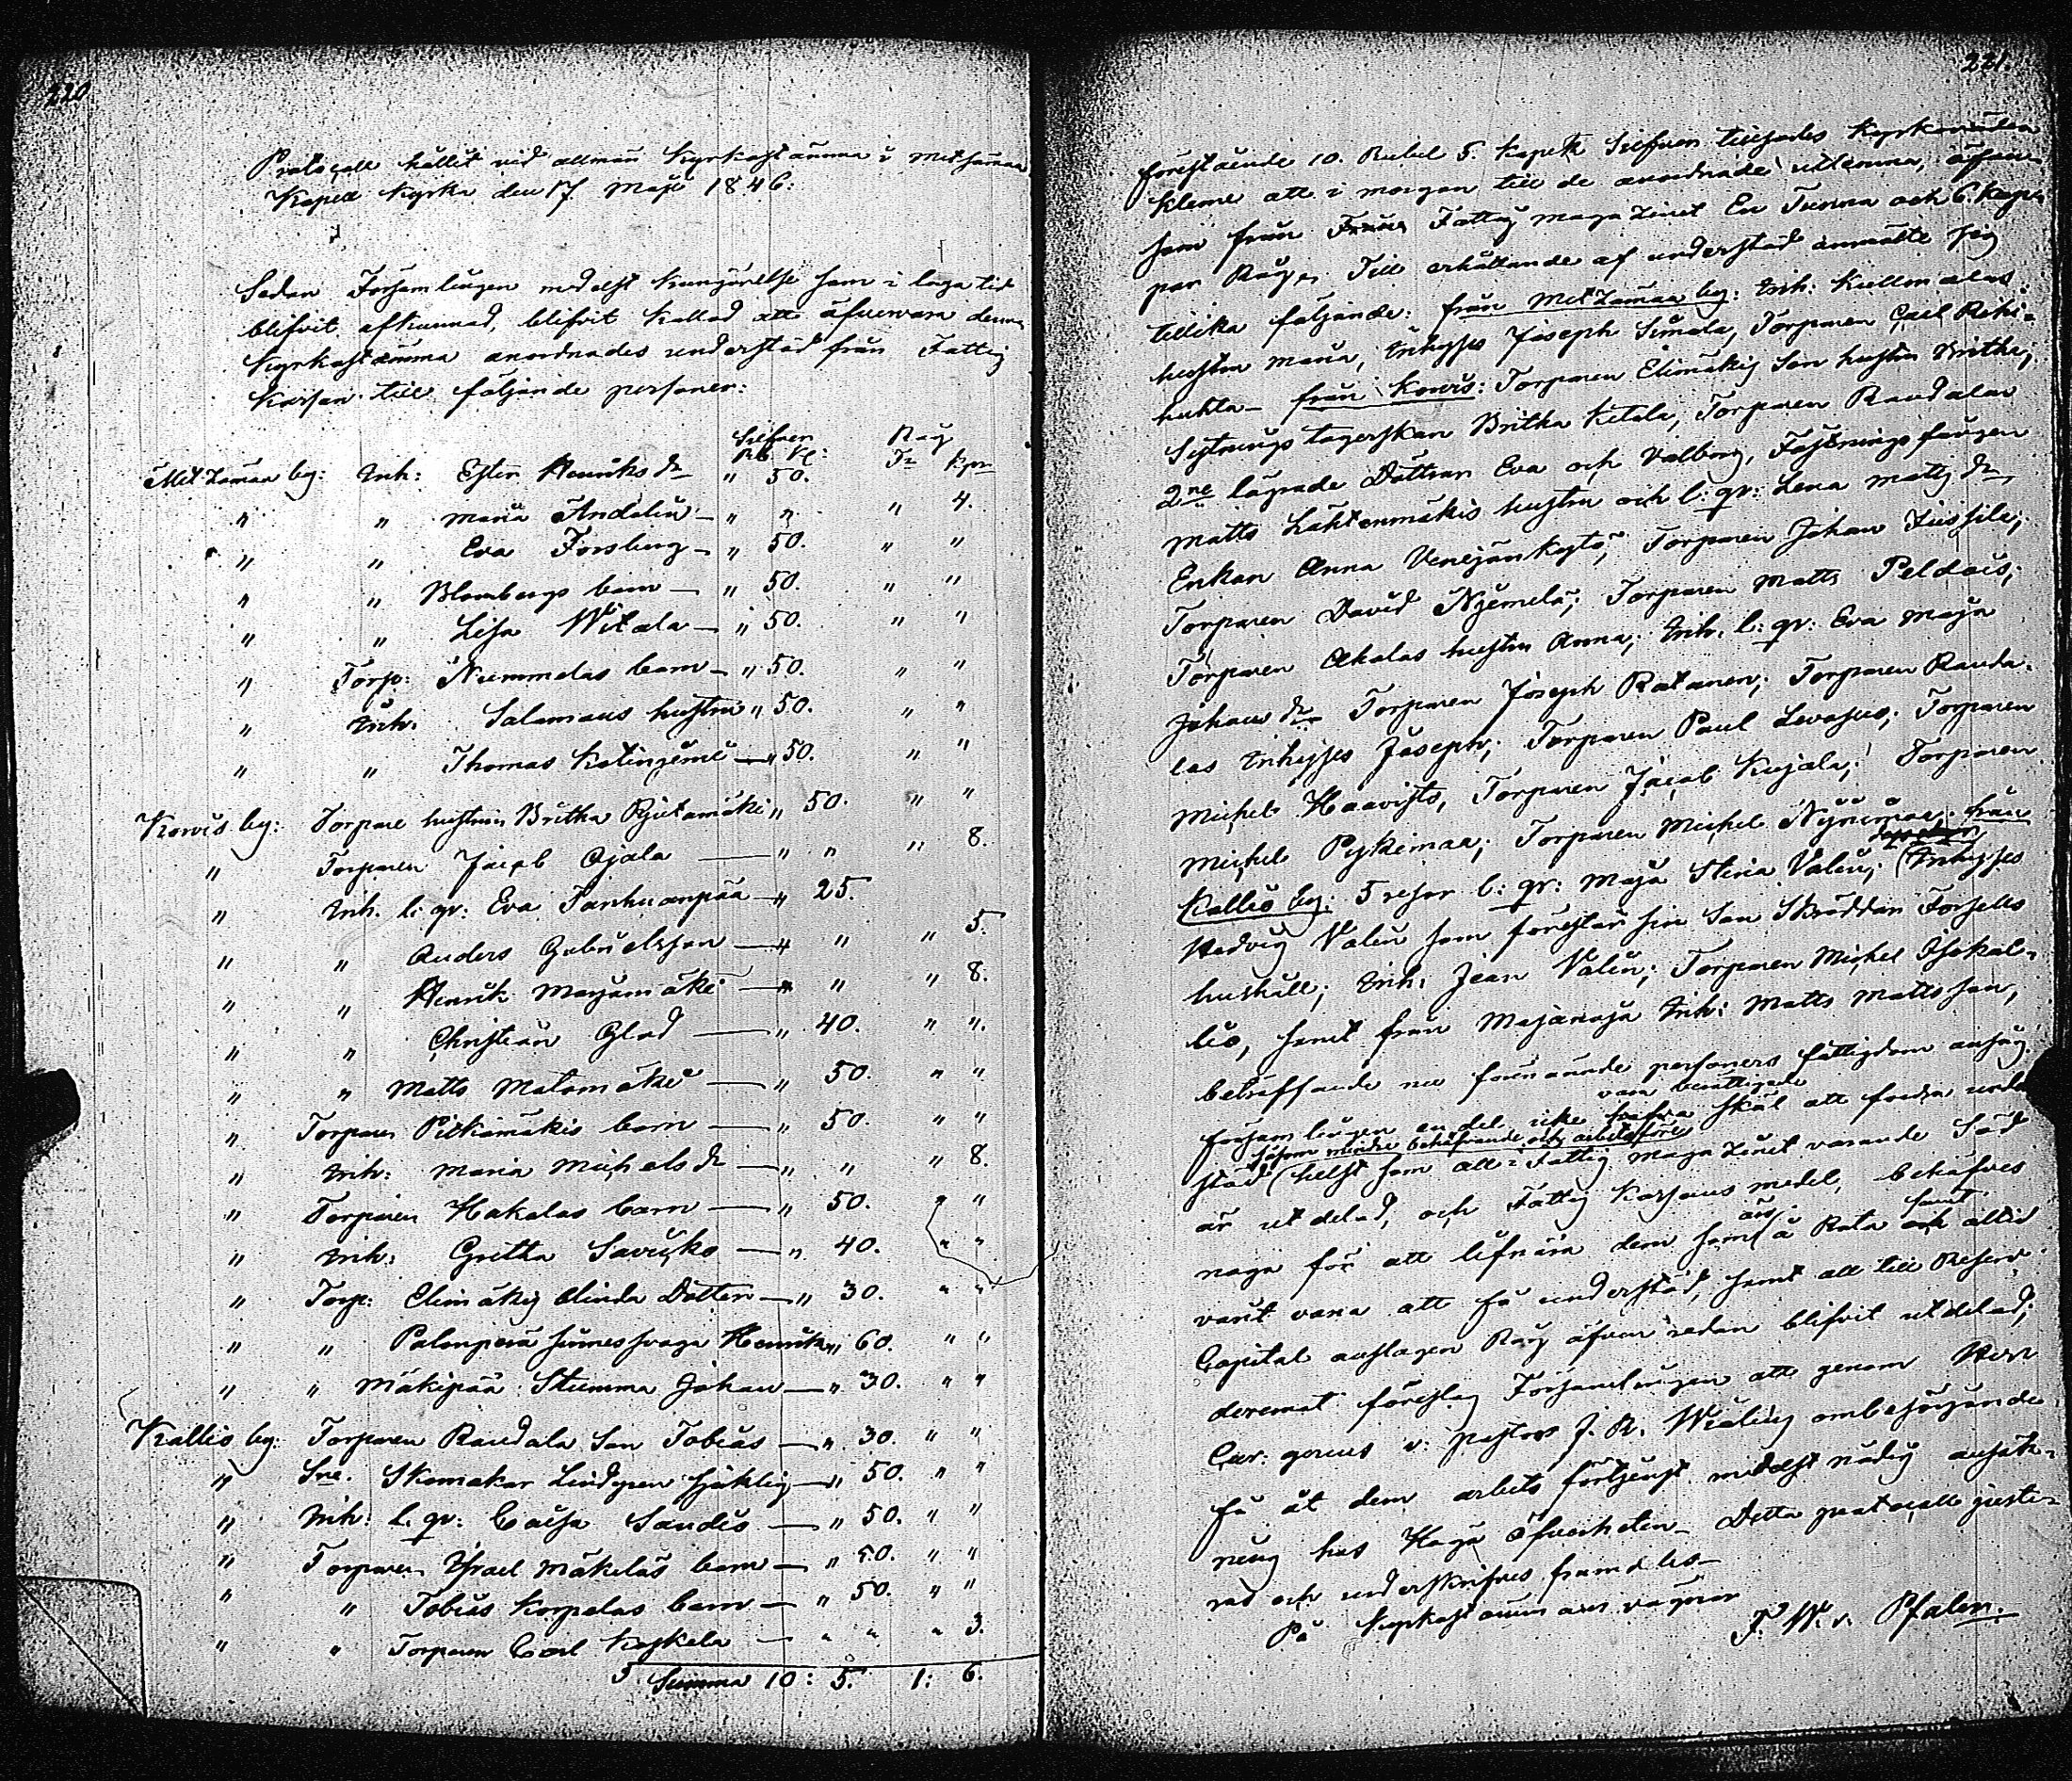 220.
Protocoll hållit vid allmän Kyrkostämma i Metzämaa
Kapell Kyrka den 17 Maji 1846:
Sedan Församlingen medelst kungörelse som i laga tid
blifvit afkunnad, blifvit kallad att öfvervara denna
Kyrkostämma anordnades understöd från Fattig
Kassan till följande personer:
Silfver Råg
Rub. K: Tr Kpr
Metzämaa by: Inh: Ester Henriksdr " 50.
" " Maria Andelin — " " " 4.
" " Eva Forsberg — " 50. " "
" " Blombergs barn — " 50. " "
" " Lisa Witala — " 50. " "
" Torp: Nummelas barn — " 50. " "
" Inh. Salomons hustru " 50. " "
" " Thomas Katinzeme — " 50. " "
Korvis by: Torpare hustrun Britha Rjietamäki " 50. " "
" Torparen Jacob Ojala — " " " 8.
" Inh. l: qv: Eva Tanhuanpää — " 25.
" " Anders Gabrielsson — " " " 5.
" " Henrik Marjamäki — " " " 8.
" " Christian Glad — " 40. " ".
" " Matts Matomäki — " 50. " "
" Torparen Pitkämäkis barn — " 50. " "
" Inh: Maria Michelsdr — " " " 8.
" Torparen Hakalas barn — " 50. " "
" Inh: Gretha Savusko — " 40. " "
" Torp: Elimäkis blinda Dotter — " 30. " "
" " Palonperä sinnessvaga Henrik " 60. " "
" " Mäkipää Stumma Johan — " 30. " "
Kallio by: Torparen Raudala Son Tobias — " 30. " "
" Sne. Skomakar Lindgren sjuklig — " 50. " "
" Inh: l. qv: Caisa Sandis — " 50. " "
" Torparen Israel Mäkeläs barn — " 50. " "
" " Tobias Korpelas barn — " 50. " "
" " Torparen Carl Koskela — " " " 3.
Summa 10: 5. 1: 6.
221.
förestående 10. Rubel 5. Kopek Silfver tillsades Kyrkovärden
Kleme att i morgon till de anordnade utlemna, äfven
som från Fattig magazinet En Tunna och 6. Kap
par Råg, Till erhållande af understöd anmälte sig
tillika följande: från Metzämaa by: Inh: Kullmalas
hustru Maria, Inhyses Joseph Simola, Torparen Carl Rihi-
huhta — från Korvis: Torparen Elimäkis Son hustru Britha;
Sytnings tagerskan Britha Ketala, Torparen Raudalas
2ne lägrade Döttrar Eva och Valborg, Fästnings fången
Matts Lähtenmäkis hustru och l: qv: Lena Mattsdr,
Enkan Anna Venejänkytö; Torparen Johan Jussila;
Torparen David Nyemelä; Torparen Matts Peldois;
Torparen Ahalas hustru Anna; Inh. l: qv: Eva Maja
Johansdr Torparen Joseph Ratanen; Torparen Rauda-
las Inhyses Joseph; Torparen Paul Levasus; Torparen
Michel Haavisto, Torparen Jacob Kujala; Torparen
Michel Pykämaa; Torparen Michel Nynimaa; från
Kallio by: 5 resor l: qv: Maja Stina Valin; (Inhyses
Hedvig Valin som förestår sin Son Skräddar Forsells
hushåll; Inh: Jean Valin; Torparen Michel Isokal-
lio, samt från Majanoja Inh: Matts Mattsson,
beträffande nu förenämnde personers fattigdom ansåg
vara berättigade
församlingen en del icke hafva skäl att fordra under
såsom mindre behöfvande och arbetsföre
stöd (helst som all i Fattig magazinet varande Säd
är utdelad, och Fattig Kassans medel, behöfves
äro samt
noga för att lifnära dem som å Rota och altid
varit vana att få understöd, samt all till Reserv
Capital anslagen Råg äfven redan blifvit utdelad;
deremot föreslog Församlingen att genom Herr
Cur: gerens v: pastor J. R. Wialén ombesörjande
få åt dem arbets förtjenst medelst nådig ansök-
ning hos Höga Öfverheten — Detta protocoll juste-
rad och underskrifves framdeles —
På Kyrkostämmans vägnar
F. W. v. Pfaler.